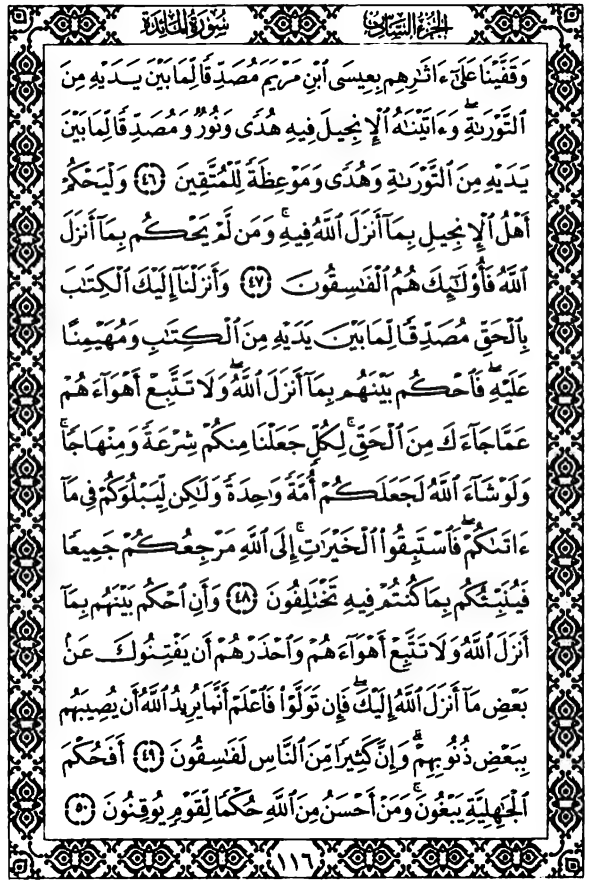 سُورَةُ المَائِدَة الجُزءُ السَّادِسُ
وَقَفَّيْنَا عَلَىٰٓ ءَاثَٰرِهِم بِعِيسَى ٱبْنِ مَرْيَمَ مُصَدِّقًا لِّمَا بَيْنَ يَدَيْهِ مِنَ
ٱلتَّوْرَىٰةِ ۖ وَءَاتَيْنَٰهُ ٱلْإِنجِيلَ فِيهِ هُدًى وَنُورٌ وَمُصَدِّقًا لِّمَا بَيْنَ
يَدَيْهِ مِنَ ٱلتَّوْرَىٰةِ وَهُدًى وَمَوْعِظَةً لِّلْمُتَّقِينَ ٤٦ وَلْيَحْكُمْ
أَهْلُ ٱلْإِنجِيلِ بِمَآ أَنزَلَ ٱللَّهُ فِيهِ ۚ وَمَن لَّمْ يَحْكُم بِمَآ أَنزَلَ
ٱللَّهُ فَأُو۟لَٰٓئِكَ هُمُ ٱلْفَٰسِقُونَ ٤٧ وَأَنزَلْنَآ إِلَيْكَ ٱلْكِتَٰبَ
بِٱلْحَقِّ مُصَدِّقًا لِّمَا بَيْنَ يَدَيْهِ مِنَ ٱلْكِتَٰبِ وَمُهَيْمِنًا
عَلَيْهِ ۖ فَٱحْكُم بَيْنَهُم بِمَآ أَنزَلَ ٱللَّهُ ۖ وَلَا تَتَّبِعْ أَهْوَآءَهُمْ
عَمَّا جَآءَكَ مِنَ ٱلْحَقِّ ۚ لِكُلٍّ جَعَلْنَا مِنكُمْ شِرْعَةً وَمِنْهَاجًا ۚ
وَلَوْ شَآءَ ٱللَّهُ لَجَعَلَكُمْ أُمَّةً وَٰحِدَةً وَلَٰكِن لِّيَبْلُوَكُمْ فِى مَآ
ءَاتَىٰكُمْ ۖ فَٱسْتَبِقُوا۟ ٱلْخَيْرَٰتِ ۚ إِلَى ٱللَّهِ مَرْجِعُكُمْ جَمِيعًا
فَيُنَبِّئُكُم بِمَا كُنتُمْ فِيهِ تَخْتَلِفُونَ ٤٨ وَأَنِ ٱحْكُم بَيْنَهُم بِمَآ
أَنزَلَ ٱللَّهُ وَلَا تَتَّبِعْ أَهْوَآءَهُمْ وَٱحْذَرْهُمْ أَن يَفْتِنُوكَ عَنۢ
بَعْضِ مَآ أَنزَلَ ٱللَّهُ إِلَيْكَ ۖ فَإِن تَوَلَّوْا۟ فَٱعْلَمْ أَنَّمَا يُرِيدُ ٱللَّهُ أَن يُصِيبَهُم
بِبَعْضِ ذُنُوبِهِمْ ۗ وَإِنَّ كَثِيرًا مِّنَ ٱلنَّاسِ لَفَٰسِقُونَ ٤٩ أَفَحُكْمَ
ٱلْجَٰهِلِيَّةِ يَبْغُونَ ۚ وَمَنْ أَحْسَنُ مِنَ ٱللَّهِ حُكْمًا لِّقَوْمٍ يُوقِنُونَ ٥٠
١١٦